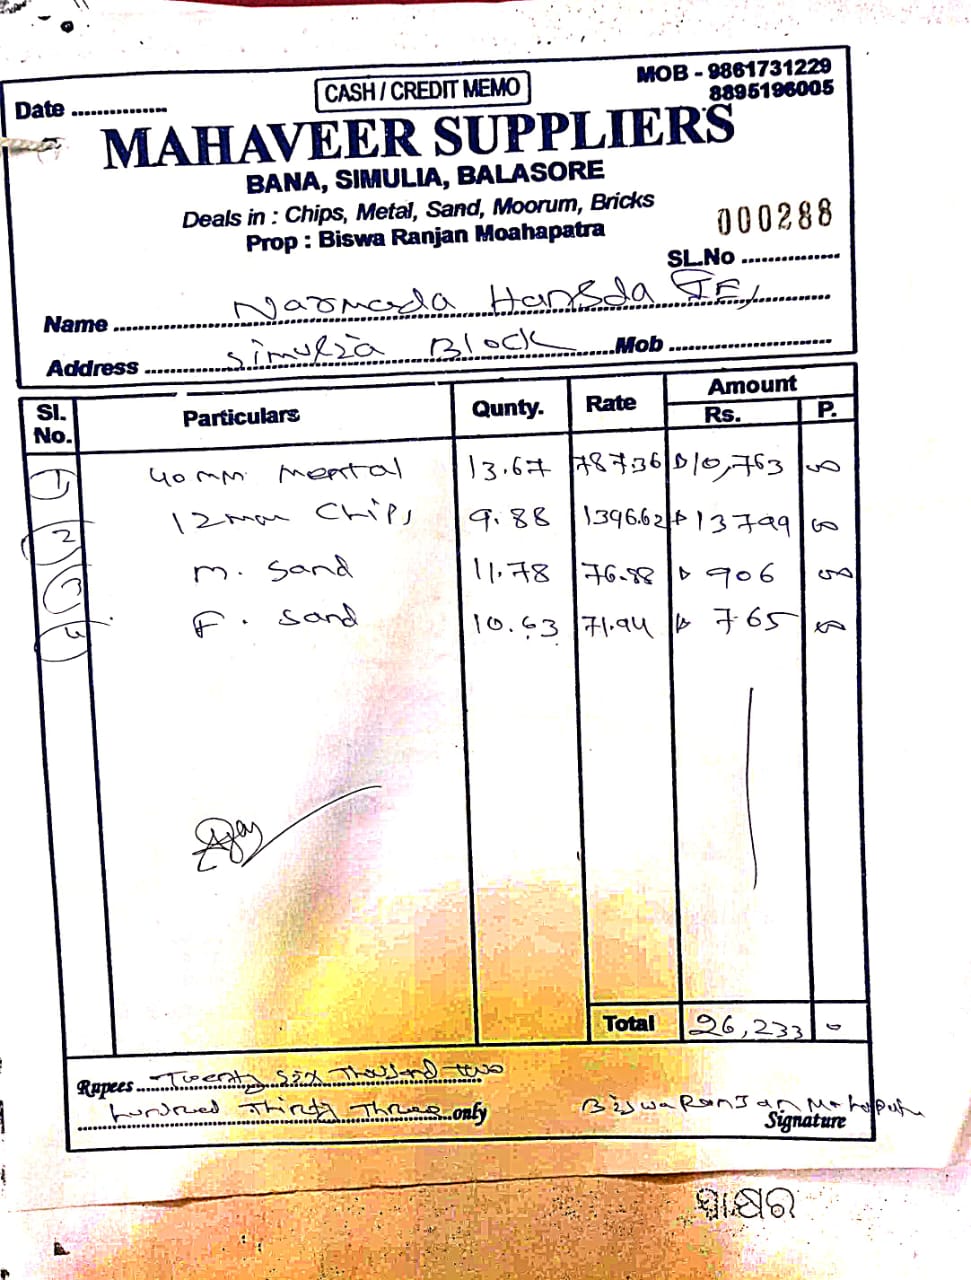 Date ...............
CASH / CREDIT MEMO
MOB - 9861731229
8895196005
MAHAVEER SUPPLIERS
BANA, SIMULIA, BALASORE
Deals in : Chips, Metal, Sand, Moorum, Bricks
Prop : Biswa Ranjan Moahapatra
000288
SL.No ...............
Name Narmada Hansda JE,
Address Simulia Block Mob ...............
Sl. No. Particulars Qunty. Rate Amount Rs. P.
1 40 mm mental 13.67 787.36 10,763 00
2 12 mm Chips 9.88 1396.62 13799 00
3 m. sand 11.78 76.88 906 00
4 F. sand 10.63 71.94 765 00
Ajay
Total 26,233 0
Rupees Twenty six Thousand two
hundred Thirty Three only
Biswa Ranjan Mohapatra
Signature
ସ୍ୱାକ୍ଷର